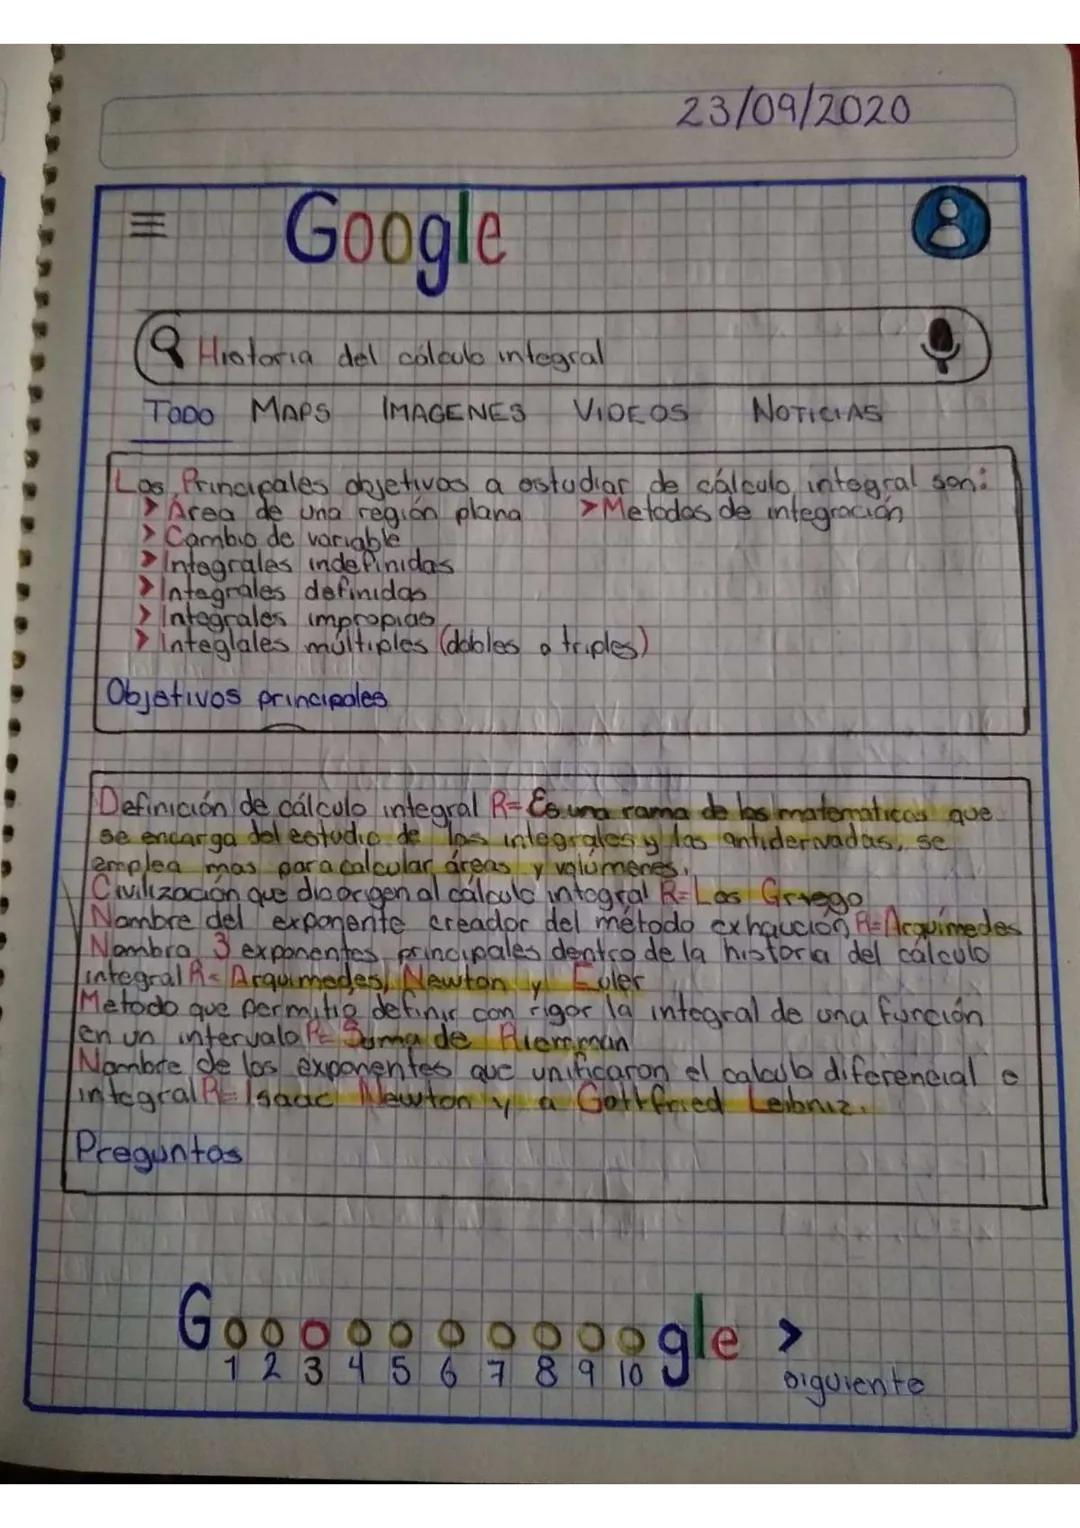 23/09/2020
Google
Historia del cálculo integral
TODO MAPS IMAGENES VIDEOS NOTICIAS
Los Principales objetivos a estudiar de cálculo integral son:
> Área de una región plana > Metodos de integración
> Cambio de variable
> Integrales indefinidas
> Integrales definidas
> Integrales impropias
> Integlales múltiples (dobles o triples)
Objetivos principales
Definición de cálculo integral R= Es una rama de las matematicas que
se encarga del estudio de las integrales y las antiderivadas, se
emplea mas para calcular áreas y volúmenes.
Civilización que dio origen al cálculo integral R= Los Griego
Nombre del exponente creador del método exhaución R= Arquímedes
Nombra 3 exponentes principales dentro de la historia del cálculo
integral R= Arquimedes, Newton y Euler
Metodo que permitio definir con rigor la integral de una función
en un intervalo R= Suma de Riemman
Nombre de los exponentes que unificaron el calculo diferencial e
integral R= Isaac Newton y a Gottfried Leibniz.
Preguntas
Goooooooooogle >
1 2 3 4 5 6 7 8 9 10 siguiente